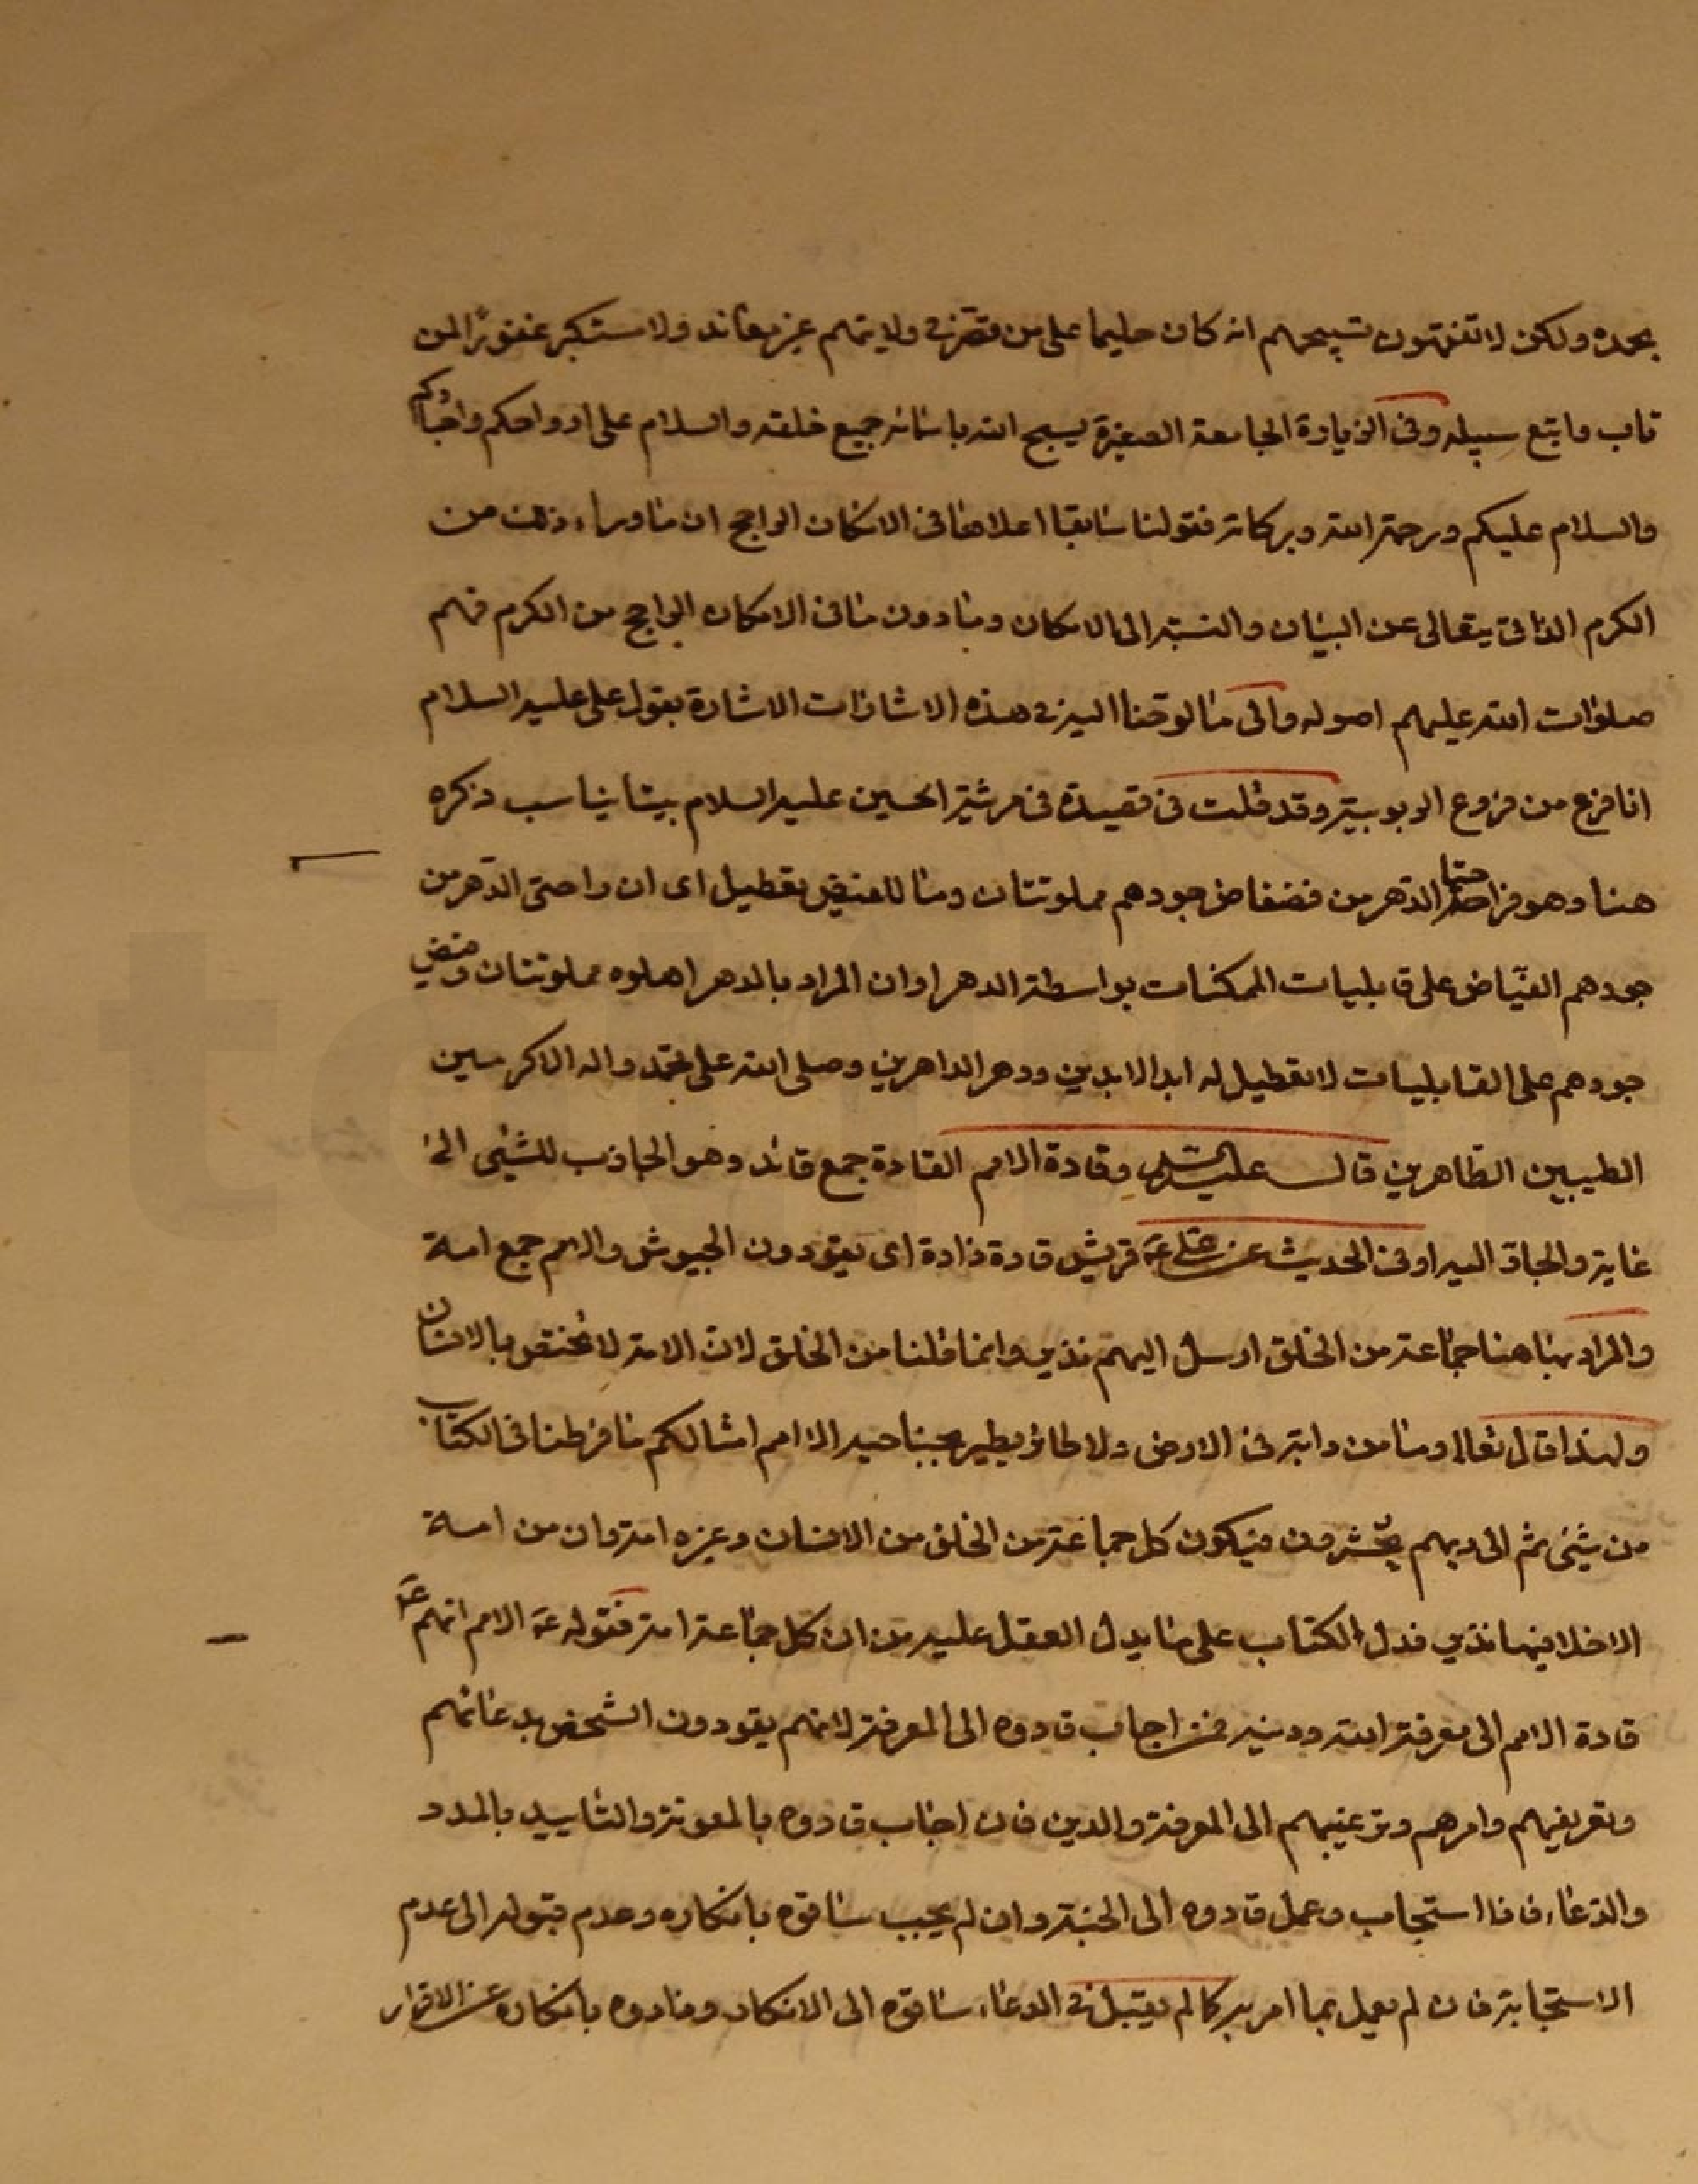 بحمده ولكن لا تفقهون تسبيحهم انه كان حليما على من قصر في ولايتهم غير معاند ولا مستكبر غفورًا لمن
تاب واتبع سبيله وفى الزيارة الجامعة الصغيرة يسبح الله باسمائه جميع خلقه والسلام على ارواحكم واجسادكم
والسلام عليكم ورحمة الله وبركاته فقولنا سابقا اعلاها فى الامكان الراجح ان ما وراء ذلك من
الكرم الذاتى يتعالى عن البيان والنسبة الى الامكان وما دون ما فى الامكان الراجح من الكرم فهم
صلوات الله عليهم اصوله والى ما لوحنا اليه فى هذه الاشارات الاشارة بقول على عليه السلام
انا فرع من فروع الربوبية وقد قلت فى قصيدة فى مرثية الحسين عليه السلام بيتا يناسب ذكره
هنا وهو فراحتا الدهر من فضفاض جودهم مملوئتان وما للفيض تعطيل اى ان راحتى الدهر من
جودهم الفيّاض على قابليات الممكنات بواسطة الدهر او ان المراد بالدهر اهلوه مملوئتان وفيض
جودهم على القابليات لا تعطيل له ابد الابدين ودهر الداهرين وصلى الله على محمد واله الاكرمين
الطيبين الطاهرين قال عليه السلام وقادة الامم القادة جمع قائد وهو الجاذب للشئ الى
غاية والجاذ اليه او فى الحديث عن على عَ قريش قادة ذادة اى يقودون الجيوش والامم جمع امة
والمراد بها هنا جماعة من الخلق ارسل اليهم نذير وانما قلنا من الخلق لان الامة لا تختص بالانسان
ولهذا قال تعالى وما من دابة فى الارض ولا طائر يطير بجناحيه الا امم امثالكم ما فرطنا فى الكتاب
من شئ ثم الى ربهم يحشرون فيكون كل جماعة من الخلق من الانسان وغيره امة وان من امة
الا خلا فيها نذير فدل الكتاب على ما يدل العقل عليه من ان كل جماعة امة فقوله عَ الامم انهم عَ
قادة الامم الى معرفة الله ودينه فمن اجاب قادوه الى المعرفة لانهم يقودون الشخص بدعائهم
وتعريفهم وامرهم وترغيبهم الى المعرفة والدين فان اجاب قادوه بالمعونة والتاييد بالمدد
والدعاء فاذا استجاب وعمل قادوه الى الجنة وان لم يجب ساقوه بانكاره وعدم قبوله الى عدم
الاستجابة فان لم يعمل بما امر به كما لم يقبل فى الدعاء ساقوه الى الانكار وذادوه بانكاره عن الاقرار